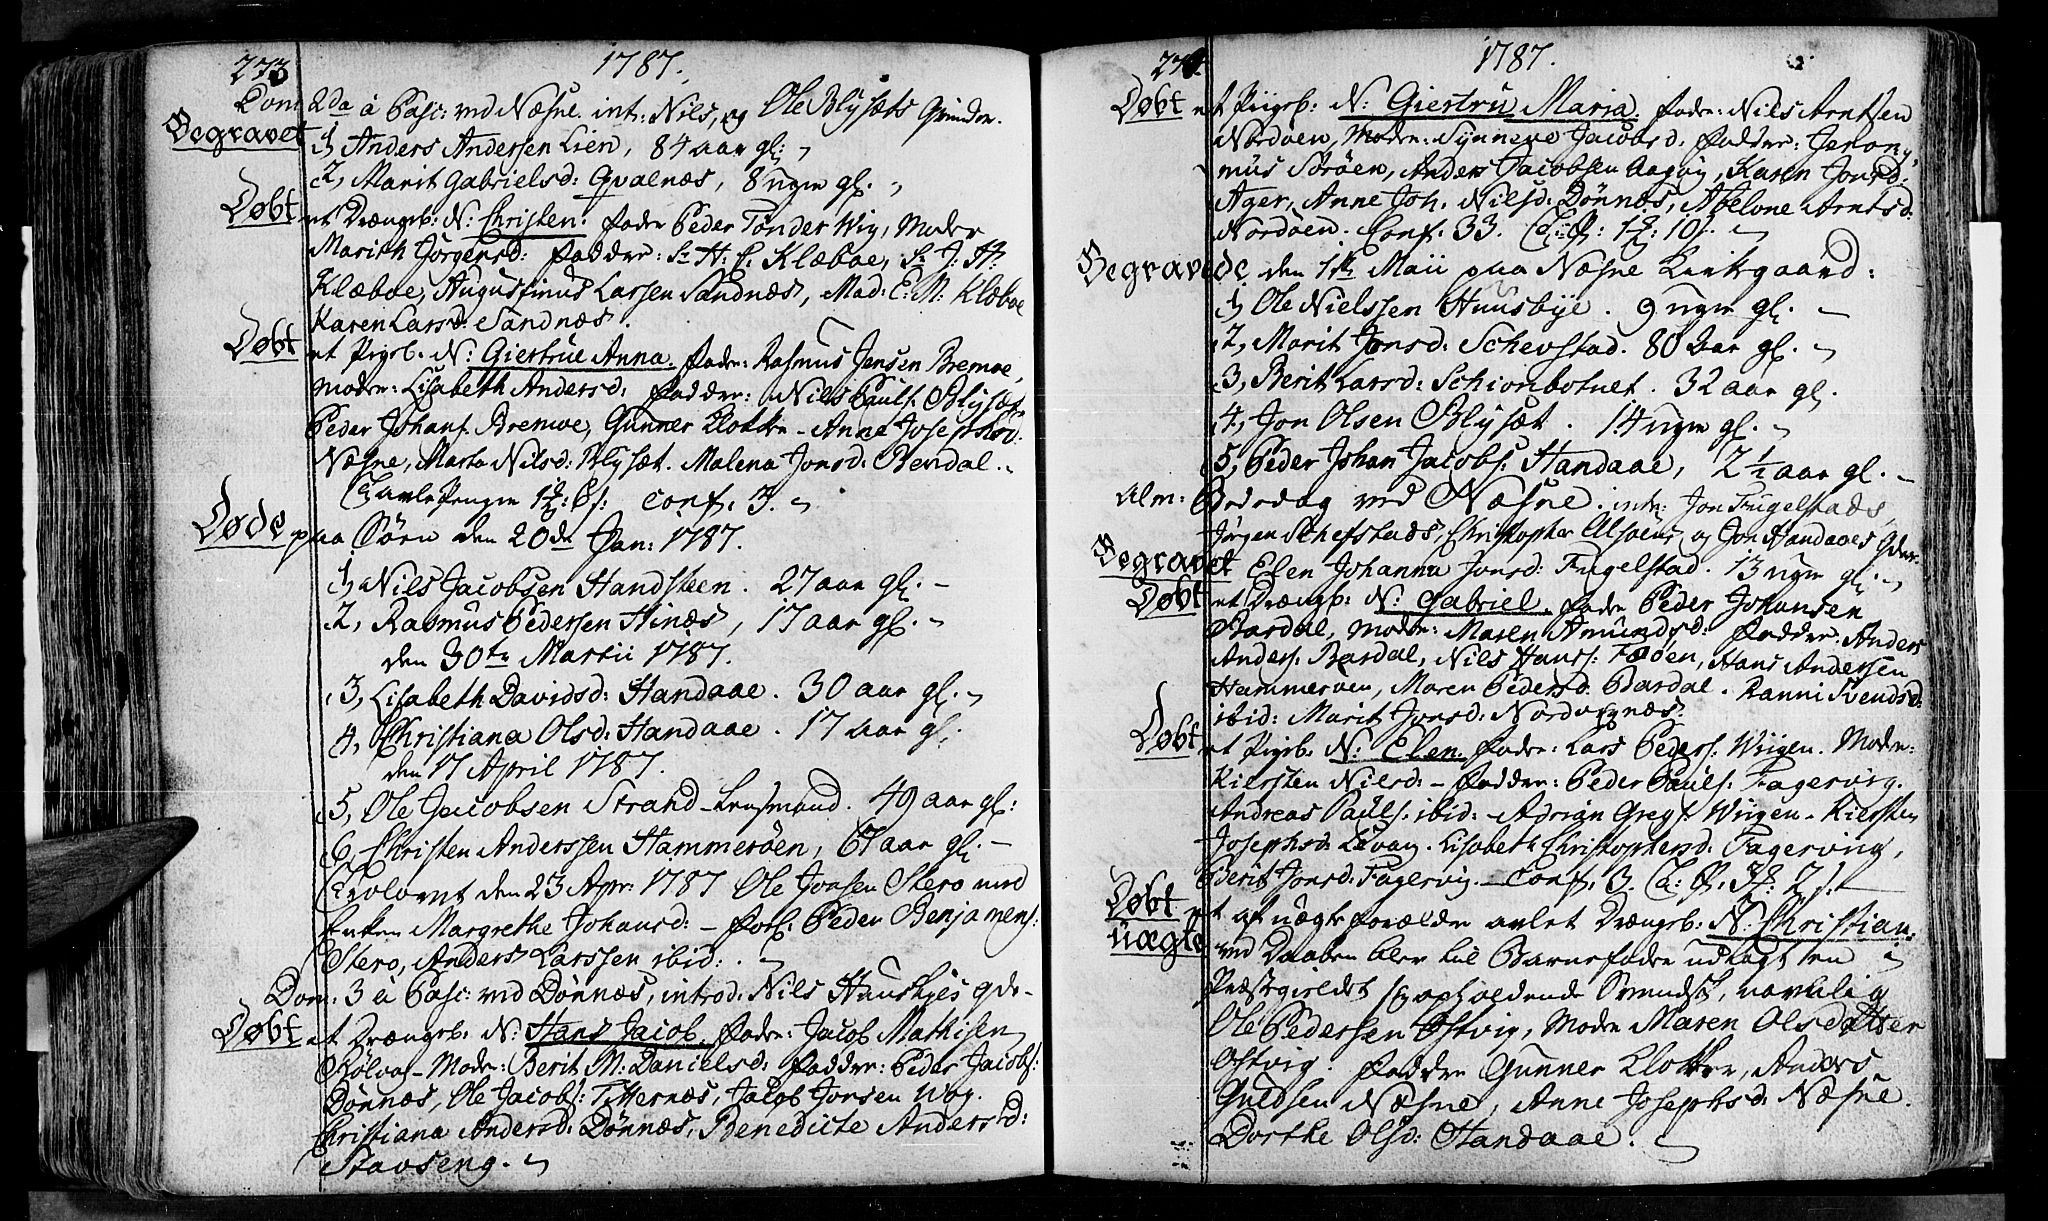 273
1787.
Dom 2da à Pasc: ved Næsne. int: Nils, og Ole Blysæts Qvinder.
Begravet
1, Anders Andersen Lien, 84 aar gl:
2, Marit Gabrielsd: Qvalnæs, 8 ugr gl.
Døbt et Drængeb: N: Christen: fader Peder Tønder Wig, Moder
Marith Jørgensd: Faddere: Sr H: C: Klæboe, Sr J: H:
Klæboe, Augustinus Larsen Sandnæs, Mad: E: M: Klæboe
Karen Larsd: Sandnæs.
Døbt et Pigeb. N: Giertrue Anna. Fader: Rasmus Jensen Bremve,
moder: Lisabeth Andersd: Fadder: Nils Pauls: Blysæt,
Peder Johans: Bremve, Gunner Klokker - Anne Josephsd:
Næsne, Marta Nilsd: Blysæt. Malena Jonsd: Rendal.
conf: 3.
Døde paa Søen den 20de Jan: 1787.
1, Niels Jacobsen Handsteen. 27 aar gl: -
2, Rasmus Pedersen Hinæs, 17 aar gl. -
den 30te Martii 1787.
3, Lisabeth Davidsd: Handaae. 30 aar gl.
4, Christiana Olsd: Handaae. 17 aar gl.
den 17 April 1787.
5, Ole Jacobsen Strand - Lensmand. 49 aar gl:
6, Christen Anderssen Hammerøen, 67 aar gl: -
Trolovet den 23 Apr: 1787 Ole Jonsen Stero med
Enken Margrethe Johansd: - Forl: Peder Benjamens:
Stero, Anders Larssen ibid:
Dom: 3 à Pasc: ved Dønnæs, introd: Nils Huusbyes qde.
Døbt et Drængeb: N: Hans Jacob. Fader: Jacob Mathisen
Moder: Berit M: Danielsd: Fadder: Peder Jacobs:
Dønnæs, Ole Jacobs: Titternæs, Jacob Jonsen Wog.
Christiana Andersd: Dønnæs, Benedicte Andersd:
Stavseng.
274.
1787.
Døbt et Piigeb: N: Giertru Maria. fader: Nils Arntsen
Nordøen, Moder: Synneve Jacobsd. Fadder: Jerony-
mus Sørøen, Anders Jacobsen Aagøy, Karen Jonsd:
Ager, Anne Joh. Nilsd: Dønnæs, Abelone Arntsd.
Nordøen. Conf. 33.
Begravede den 1te Maii paa Næsne Kirkgaard:
1, Ole Nielssen Huusbye. 9 ugr gl. -
2, Marit Jonsd: Schevstad. 80 Aar gl.
3, Berit Larsd: Schionbotnet. 32 aar gl.
4, Jon Olsen Blysæt. 14 ugr gl. -
5, Peder Johan Jacobs: Handaae, 2 1/2 aar gl. -
Alm: Bededag ved Næsne. intr: Jon Fugelstads,
Jørgen Schefstads, Christopher Alsøens og Jon Handaaes Qder.
Begravet Elen Johanna Jonsd: Fugelstad. 13 ugr gl.
Døbt et Drængb: N: Gabriel. Fader Peder Johansen
Bardal, Moder: Maren Amundsd: Fadder: Anders
Anders: Bardal, Nils Hanss: Fæøen, Hans Andersen
Hammerøen, Maren Pedersd. Bardal. Ranni Svendsd:
ibid: Marit Jonsd: Nordvignæs.
Døbt et Pigeb. N: Elen. Fader: Lars Peders: Wiigen. Moder:
Kiersten Nilsd: - Fadder: Peder Pauls: Fagervig.
Andreas Pauls: ibid: - Adrian Gregs: Wiigen - Kiersten
Josephsd: Levang. Lisabeth Christophersd: Fagerviig,
Berit Jonsd: Fagervig. - Conf. 3.
Døbt uægte et af uægte forældre avlet Drængeb: N: Christian.
ved Daaben blev til Barnefader udlagt en
Præstgieldet sig opholdende Svendsk, navnlig
Ole Pedersen Østvig, Moder Maren Olsdatter
Østvig. Fadder Gunner Klokker, Anders
Næsne, Anne Josephsd: Næsne.
Dorthe Olsd: Handaae.